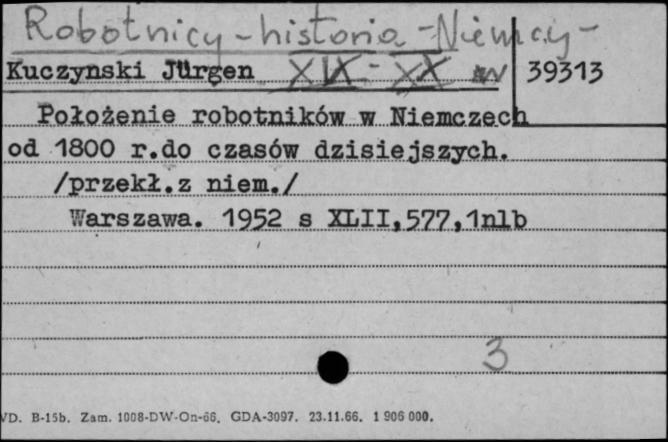 Robotnicy - historia - Niemcy -
Kuczynski Jürgen XIX - XX w 39313
Położenie robotników w Niemczech
od 1800 r.do czasów dzisiejszych.
/przekł.z niem./
Warszawa. 1952 s XLII,577,1nlb
3
VD. B-15b. Zam. 1008-DW-On-66. GDA-3097. 23.11.66. 1 906 000.